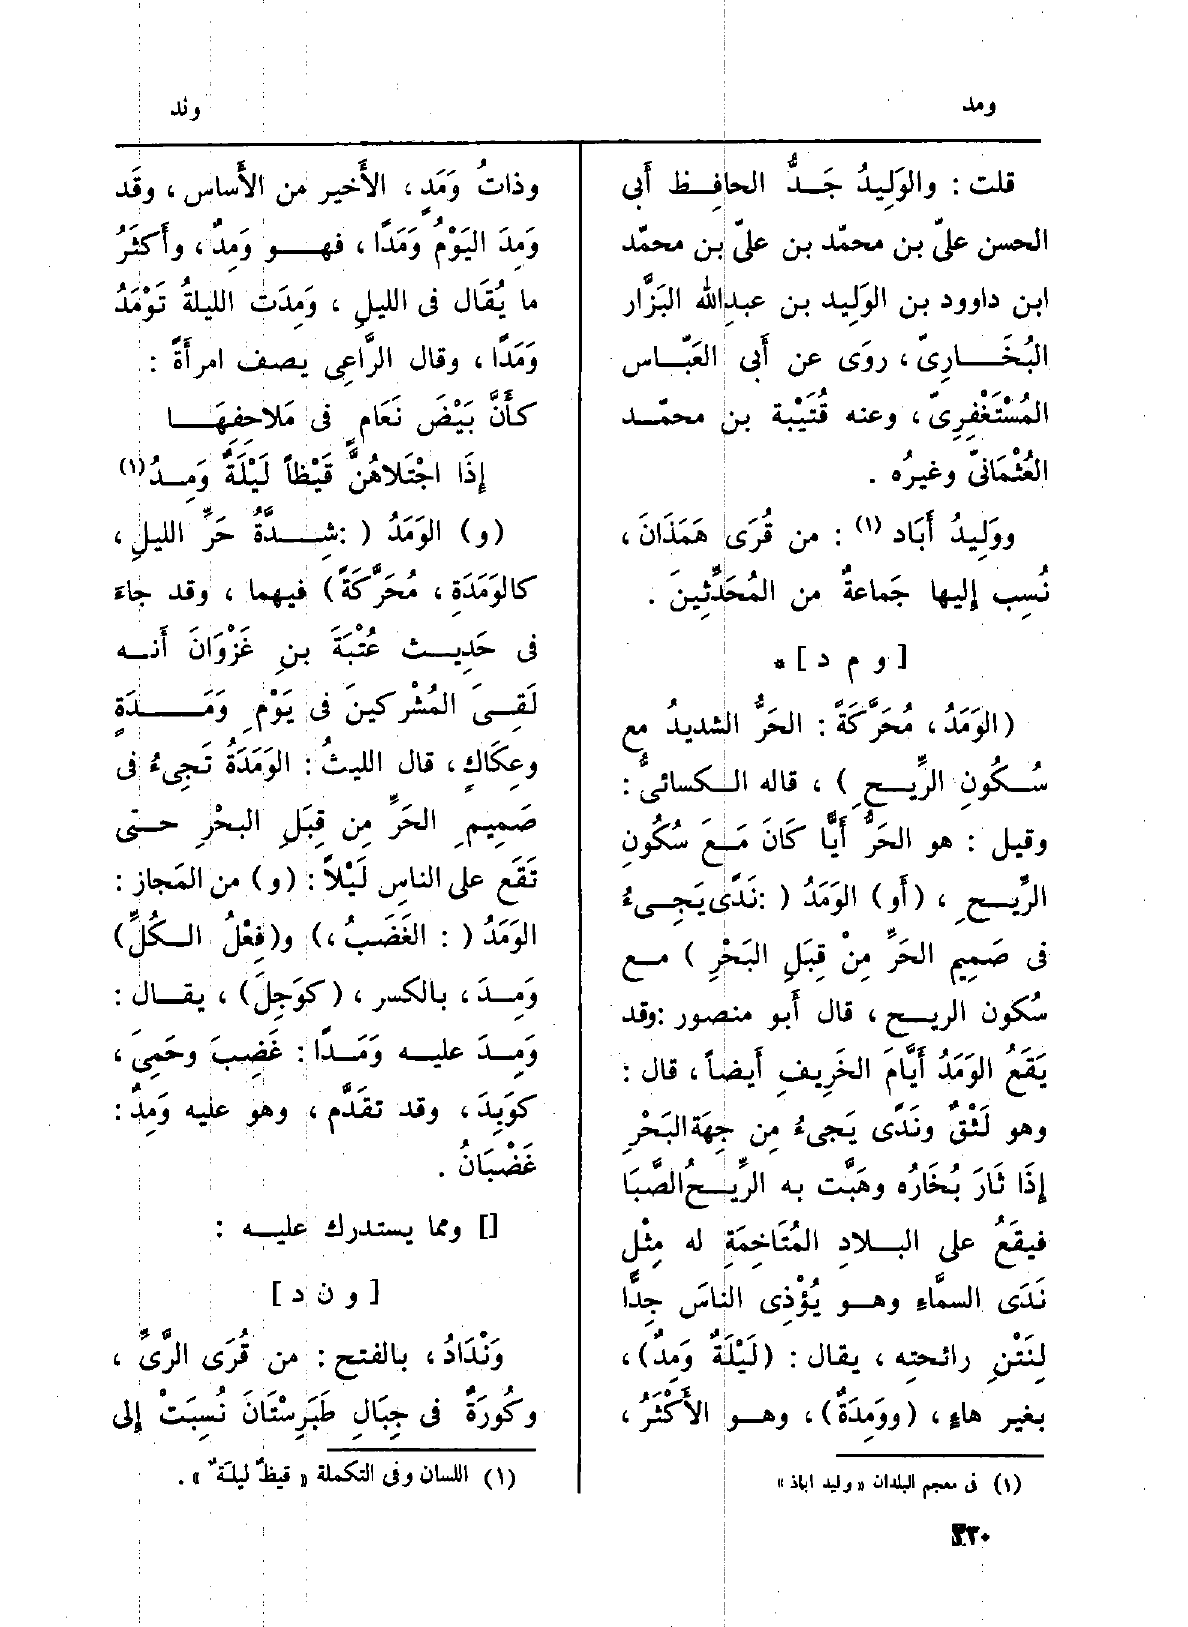 ومد
وند
قلت : والوَلِيدُ جَدُّ الحافِظ أَبى
الحسن علىّ بن محمّد بن علىّ بن محمّد
ابن داوود بن الوَلِيد بن عبدِالله البَزَّار
البُخَارِىّ ، روَى عن أَبى العَبّاس
المُسْتَغْفِرِىّ ، وعنه قُتَيْبة بن محمّد
العُثْمَانىّ وغيرُه .
ووَلِيدُ أَبَاد (١) : من قُرَى هَمَذَانَ ،
نُسِب إليها جَماعةٌ من المُحَدِّثِينَ .
[ و م د ] *
( الوَمَدُ ، مُحَرَّكَةً : الحَرُّ الشديدُ مع
سُكُونِ الرِّيحِ ) ، قاله الكسائىُّ :
وقيل : هو الحَرُّ أَيًّا كَانَ مَعَ سُكُونِ
الرِّيحِ ، ( أَو ) الوَمَدُ ( : نَدًى يَجِىءُ
فى صَمِيمِ الحَرِّ مِنْ قِبَلِ البَحْرِ ) مع
سُكون الريح ، قال أَبو منصور : وقد
يَقَعُ الوَمَدُ أَيَّامَ الخَرِيفِ أَيضاً ، قال :
وهو لَثْقٌ ونَدًى يَجِىءُ مِن جِهَةِ البَحْرِ
إِذَا ثَارَ بُخَارُه وهَبَّت به الرِّيحُ الصَّبَا
فيقَعُ على البلادِ المُتَاخِمَةِ له مِثْل
نَدَى السمَّاءِ وهو يُؤْذِى الناسَ جِدًّا
لِنَتْنِ رائحتِه ، يقال : ( لَيْلَةٌ وَمِدٌ ) ،
بغير هاءٍ ، ( ووَمِدَةٌ ) ، وهو الأَكْثَرُ ،
(١) فى معجم البلدان « وليد اباذ »
وذاتُ وَمَدٍ ، الأَخير من الأَساس ، وقَد
وَمِدَ اليَوْمُ وَمَدًا ، فهو وَمِدٌ ، وأَكثَرُ
ما يُقَال فى الليلِ ، وَمِدَت الليلةُ تَوْمَدُ
وَمَدًا ، وقال الرَّاعِى يصف امرأَةً :
كأَنَّ بَيْضَ نَعَامٍ فى مَلاحِفِهَا
إِذَا اجْتَلاهُنَّ قَيْظاً لَيْلَةٌ وَمِدُ (١)
(و) الوَمَدُ ( : شِدَّةُ حَرِّ الليلِ ،
كالوَمَدَةِ ، مُحَرَّكَةً ) فيهما ، وقد جاءَ
فى حَدِيث عُتْبَةَ بنِ غَزْوَانَ أَنه
لَقِىَ المُشْرِكينَ فى يَوْمِ وَمَدَةٍ
وعِكَاكٍ ، قال الليثُ : الوَمَدَةُ تَجِىءُ فى
صَمِيمِ الحَرِّ مِن قِبَلِ البحْرِ حتى
تَقَع على الناسِ لَيْلاً : (و) من المَجاز :
الوَمَدُ ( : الغَضَبُ ، ) و( فِعْلُ الكُلِّ )
وَمِدَ ، بالكسر ، ( كوَجِلَ ) ، يقال :
وَمِدَ عليه وَمَدًا : غَضِبَ وحَمِىَ ،
كوَبِدَ ، وقد تقدَّم ، وهو عليه وَمِدٌ :
غَضْبَانُ .
[] ومما يستدرك عليه :
[ و ن د ]
وَنْدَادُ ، بالفتح : من قُرَى الرَّىِّ ،
وكُورَةٌ فى جِبَالِ طَبَرِسْتَانَ نُسِبَتْ إِلى
(١) اللسان وفى التكملة « قيظٌ ليلةٌ » .
٣٣٠